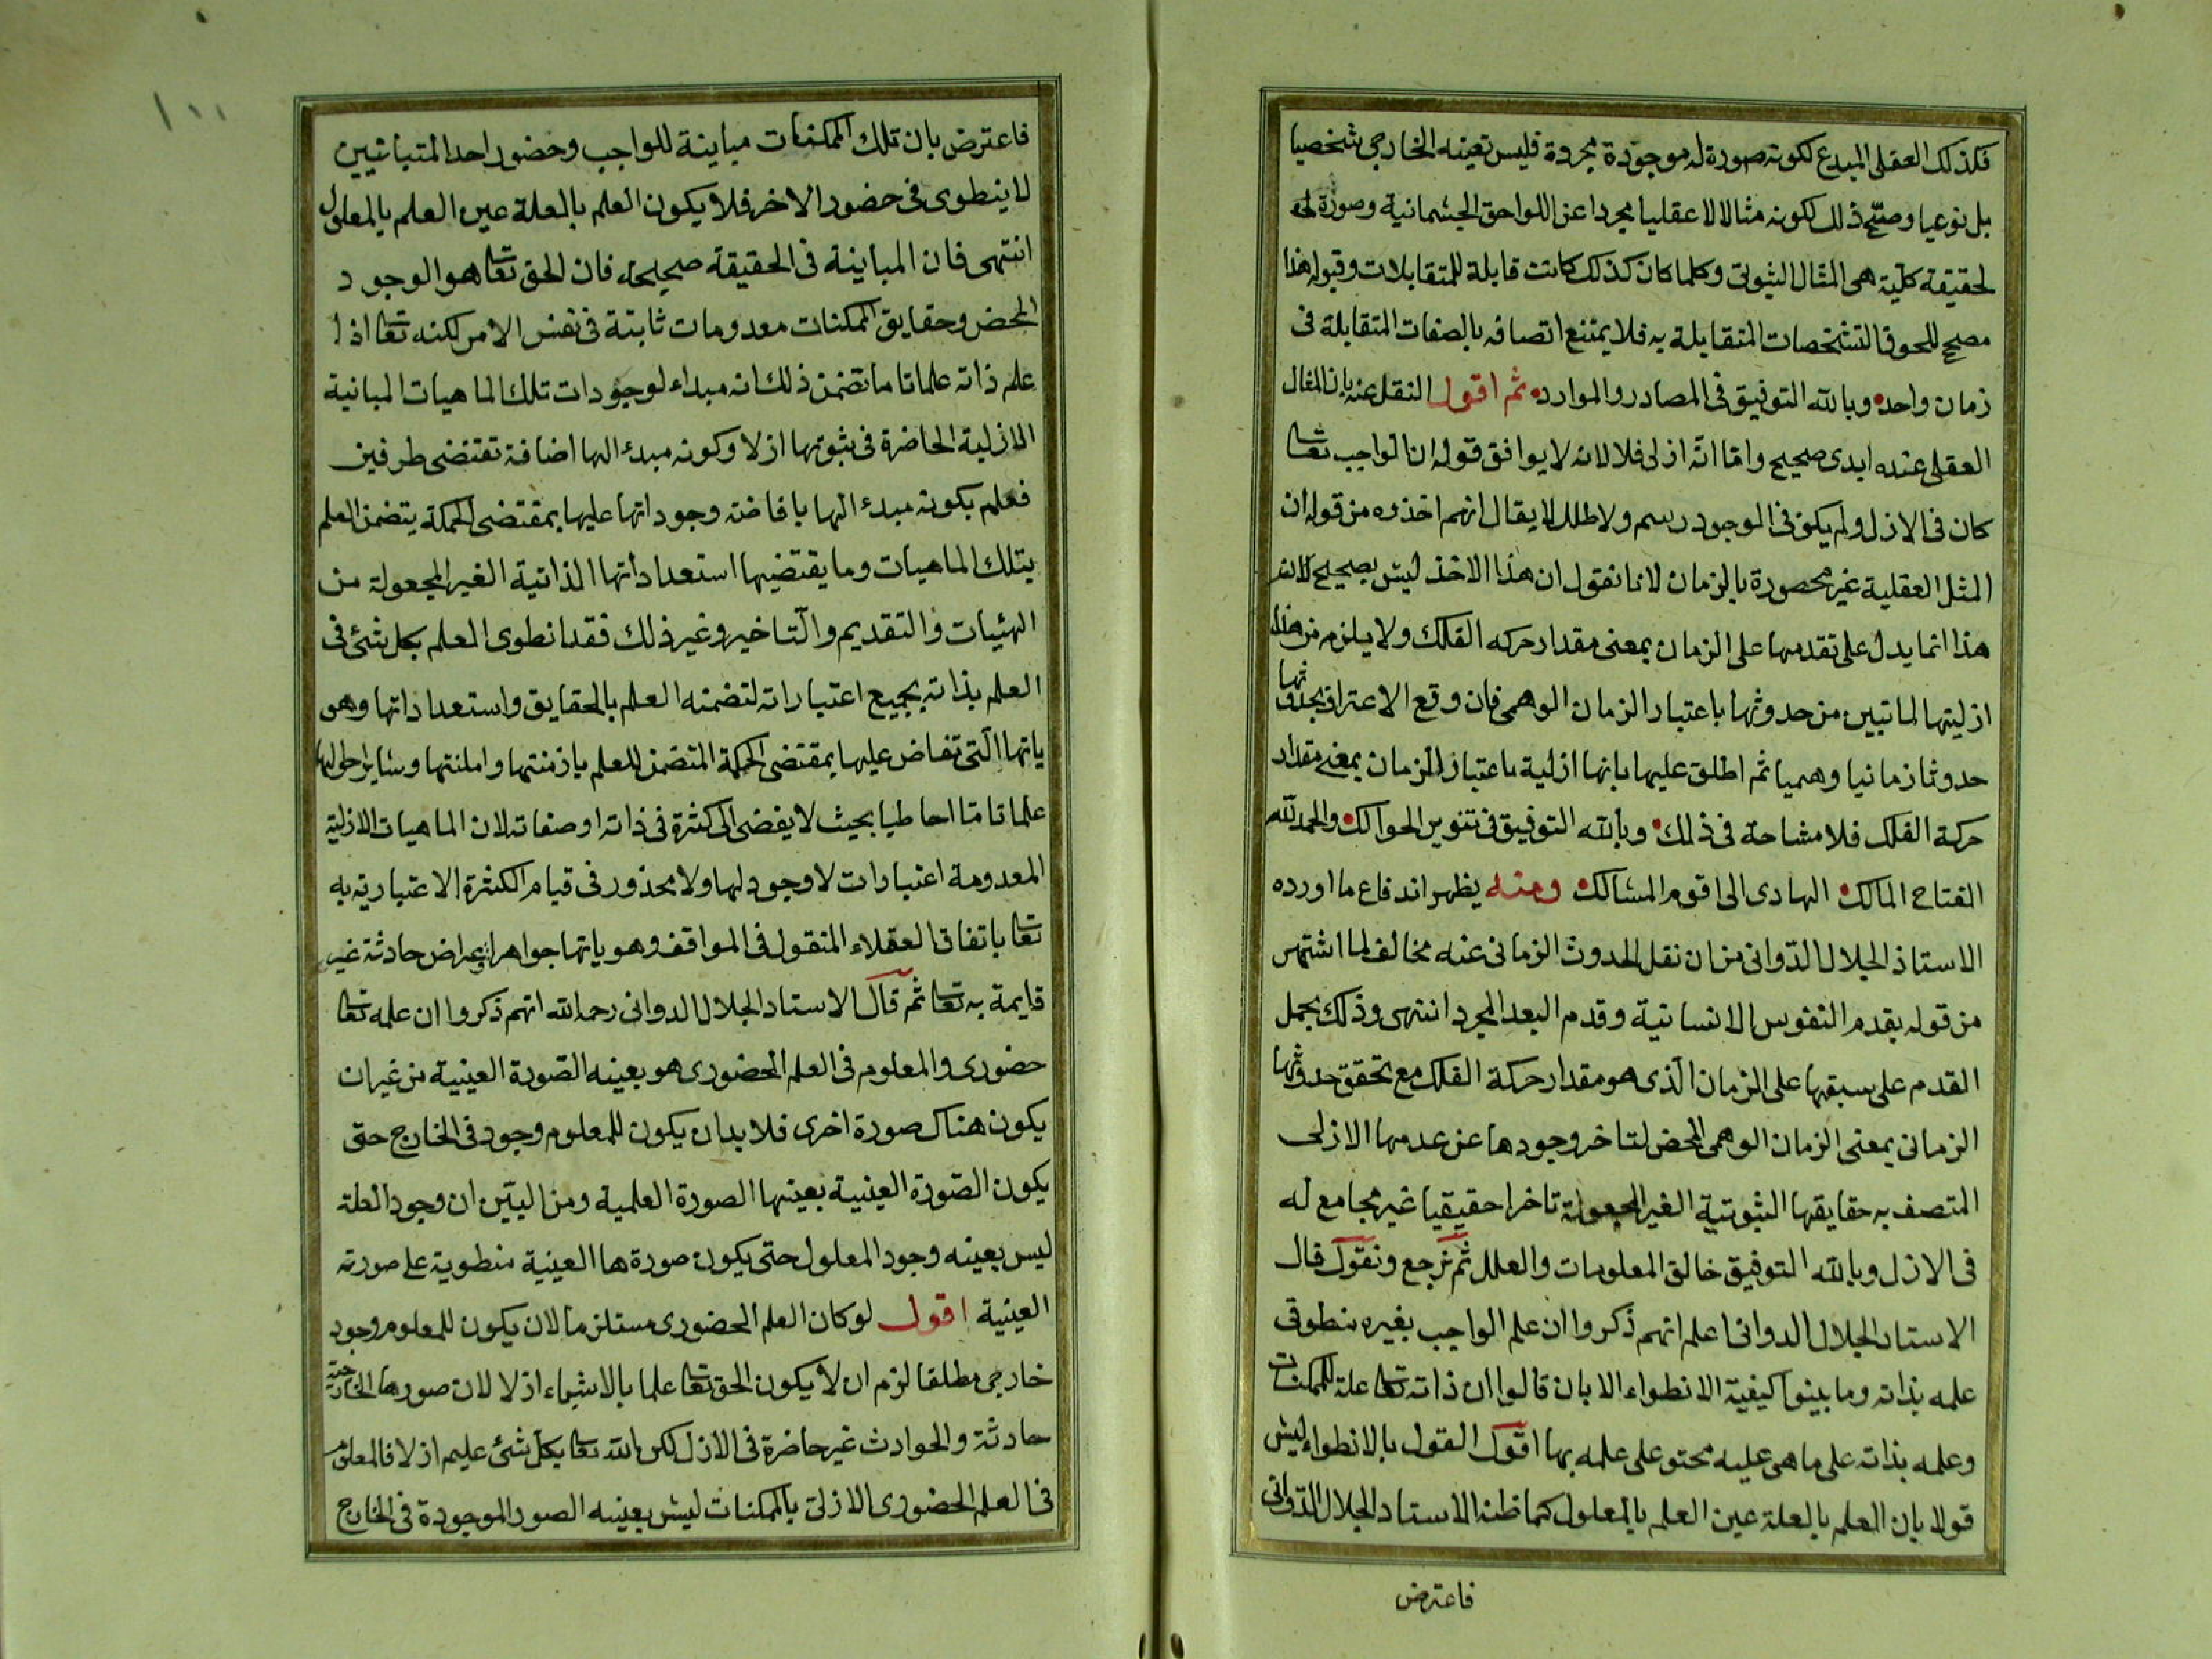 فكذلك العقلى المبدع لكونه صورة له موجودة مجردة فليس تعينه الخارجى شخصيا
بل نوعيا وصح ذلك لكونه مثالا لا عقليا مجردا عن اللواحق الجسمانية وصورة له
لحقيقة كلية هى المثال الثبوتى وكلما كان كذلك كانت قابلة للمتقابلات وقبوله هذا
مصحح للحوق التشخصات المتقابلة به فلا يمتنع اتصافه بالصفات المتقابلة فى
زمان واحد وبالله التوفيق فى المصادر والموارد ثم اقول النقل عنه بان المثال
العقلى عنده ابدى صحيح واما انه ازلى فلا لانه لا يوافق قوله ان الواجب تعا
كان فى الازل ولم يكن فى الوجود رسم ولا طلل لا يقال انهم اخذوه من قوله ان
المثل العقلية غير محصورة بالزمان لانا نقول ان هذا الاخذ ليس بصحيح لان
هذا انما يدل على تقدمها على الزمان بمعنى مقدار حركه الفلك ولا يلزم من هذا
ازليتها لما تبين من حدوثها باعتبار الزمان الوهمى فان وقع الاعتراف بحدوثها
حدوثا زمانيا وهميا ثم اطلق عليها بانها ازلية باعتبار الزمان بمعنى مقدار
حركة الفلك فلا مشاحة فى ذلك وبالله التوفيق فى تنوير الحوالك والحمد لله
الفتاح المالك الهادى الى اقوم المسالك ومنه يظهر اندفاع ما اورده
الاستاذ الجلال الدوانى من ان نقل الحدوث الزمانى عنه مخالف لما اشتهر
من قوله بقدم النفوس الانسانية وقدم البعد المجرد انتهى وذلك بحمل
القدم على سبقها على الزمان الذى هو مقدار حركة الفلك مع تحقق حدوثها
الزمانى بمعنى الزمان الوهمى المحض لتاخر وجودها عن عدمها الازلى
المتصف به حقايقها الثبوتية الغير المجعولة تاخرا حقيقيا غير مجامع له
فى الازل وبالله التوفيق خالق المعلومات والعلل ثم نرجع ونقول قال
الاستاد الجلال الدوانى اعلم انهم ذكروا ان علم الواجب بغيره منطو فى
علمه بذاته وما بينوا كيفية الانطواء الا بان قالوا ان ذاته تعا علة للممكنات
وعلمه بذاته على ما هى عليه محتو على علمه بها اقول القول بالانطواء ليس
قولا بان العلم بالعلة عين العلم بالمعلول كما ظنه الاستاد الجلال الدوانى
فاعترض
١٠١
فاعترض بان تلك الممكنات مباينة للواجب وحضور احد المتباينين
لا ينطوى فى حضور الاخر فلا يكون العلم بالعلة عين العلم بالمعلول
انتهى فان المباينة فى الحقيقة صحيحة فان الحق تعا هو الوجود
المحض وحقايق الممكنات معدومات ثابتة فى نفس الامر لكنه تعا اذا
علم ذاته علما تاما تضمن ذلك انه مبداء لوجودات تلك الماهيات المباينة
الازلية الحاضرة فى ثبوتها ازلا وكونه مبدء الها اضافة تقتضى طرفين
فعلم بكونه مبدء الها بافاضته وجوداتها عليها بمقتضى الحكمة يتضمن العلم
بتلك الماهيات وما يقتضيها استعداداتها الذاتية الغير المجعولة من
الهئيات والتقديم والتاخير وغير ذلك فقد انطوى العلم بكل شئ فى
العلم بذاته بجميع اعتباراته لتضمنه العلم بالحقايق واستعداداتها وهو
ياتها التى تفاض عليها بمقتضى الحكمة المتضمن للعلم بازمنتها وامكنتها وساير احوالها
علما تاما احاطيا بحيث لا يفضى الى كثرة فى ذاته او صفاته لان الماهيات الازلية
المعدومة اعتبارات لا وجود لها ولا محذور فى قيام الكثرة الاعتبارية به
تعا باتفاق العقلاء المنقول فى المواقف وهو ياتها جواهر اعراض حادثة غير
قايمة به تعا ثم قال الاستاد الجلال الدوانى رحمه الله انهم ذكروا ان علمه تعا
حضورى والمعلوم فى العلم الحضورى هو بعينه الصورة العينية من غير ان
يكون هناك صورة اخرى فلا بد ان يكون للمعلوم وجود فى الخارج حتى
يكون الصورة العينية بعينها الصورة العلمية ومن البين ان وجود العلة
ليس بعينه وجود المعلول حتى يكون صورة ها العينية منطوية على صورته
العينية اقول لو كان العلم الحضورى مستلزما لان يكون للمعلوم وجود
خارجى مطلقا لزم ان لا يكون الحق تعا علما بالاشياء ازلا لان صورها الخارجية
حادثة والحوادث غير حاضرة فى الازل لكن الله تعا بكل شئ عليم ازلا فالمعلوم
فى العلم الحضورى الازلى بالممكنات ليس بعينه الصور الموجودة فى الخارج